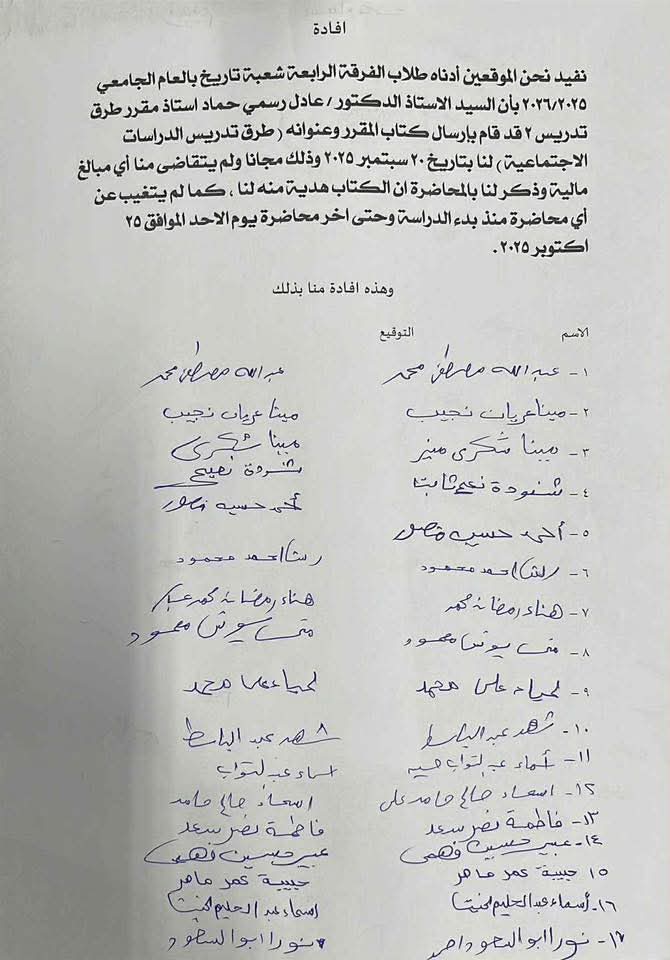 افادة
نفيد نحن الموقعين أدناه طلاب الفرقة الرابعة شعبة تاريخ بالعام الجامعي
٢٠٢٦/٢٠٢٥ بأن السيد الاستاذ الدكتور / عادل رسمي حماد استاذ مقرر طرق
تدريس ٢ قد قام بإرسال كتاب المقرر وعنوانه ( طرق تدريس الدراسات
الاجتماعية ) لنا بتاريخ ٢٠ سبتمبر ٢٠٢٥ وذلك مجانا ولم يتقاضى منا أي مبالغ
مالية وذكر لنا بالمحاضرة ان الكتاب هدية منه لنا ، كما لم يتغيب عن
أي محاضرة منذ بدء الدراسة وحتى اخر محاضرة يوم الاحد الموافق ٢٥
اكتوبر ٢٠٢٥ .
وهذه افادة منا بذلك
الاسم التوقيع
١ - عبدالله مصطفى محمد عبدالله مصطفى محمد
٢ - مينا عريان نجيب مينا عريان نجيب
٣ - مينا شكرى منير مينا شكرى
٤ - شنودة نعيم ثابت شنودة
٥ - أحمد حسين منصور أحمد حسين منصور
٦ - رشا احمد محمود رشا احمد محمود
٧ - هناء رمضان محمد هناء رمضان محمد
٨ - محمود محمود
٩ - لمياء على محمد لمياء على محمد
١٠ - شهد عبد الباسط شهد عبد الباسط
١١ - أسماء عبد التواب اسماء عبد التواب
١٢ - اسماء صالح حامد على اسماء صالح حامد
١٣ - فاطمة نصر سعد فاطمة نصر سعد
١٤ - عبير حسين فهمى عبير حسين فهمى
١٥ حبيبة عمر ماهر حبيبة عمر ماهر
١٦ - أسماء عبد الحليم اسماء عبد الحليم
١٧ - نورا ابو السعود احمد نورا ابو السعود